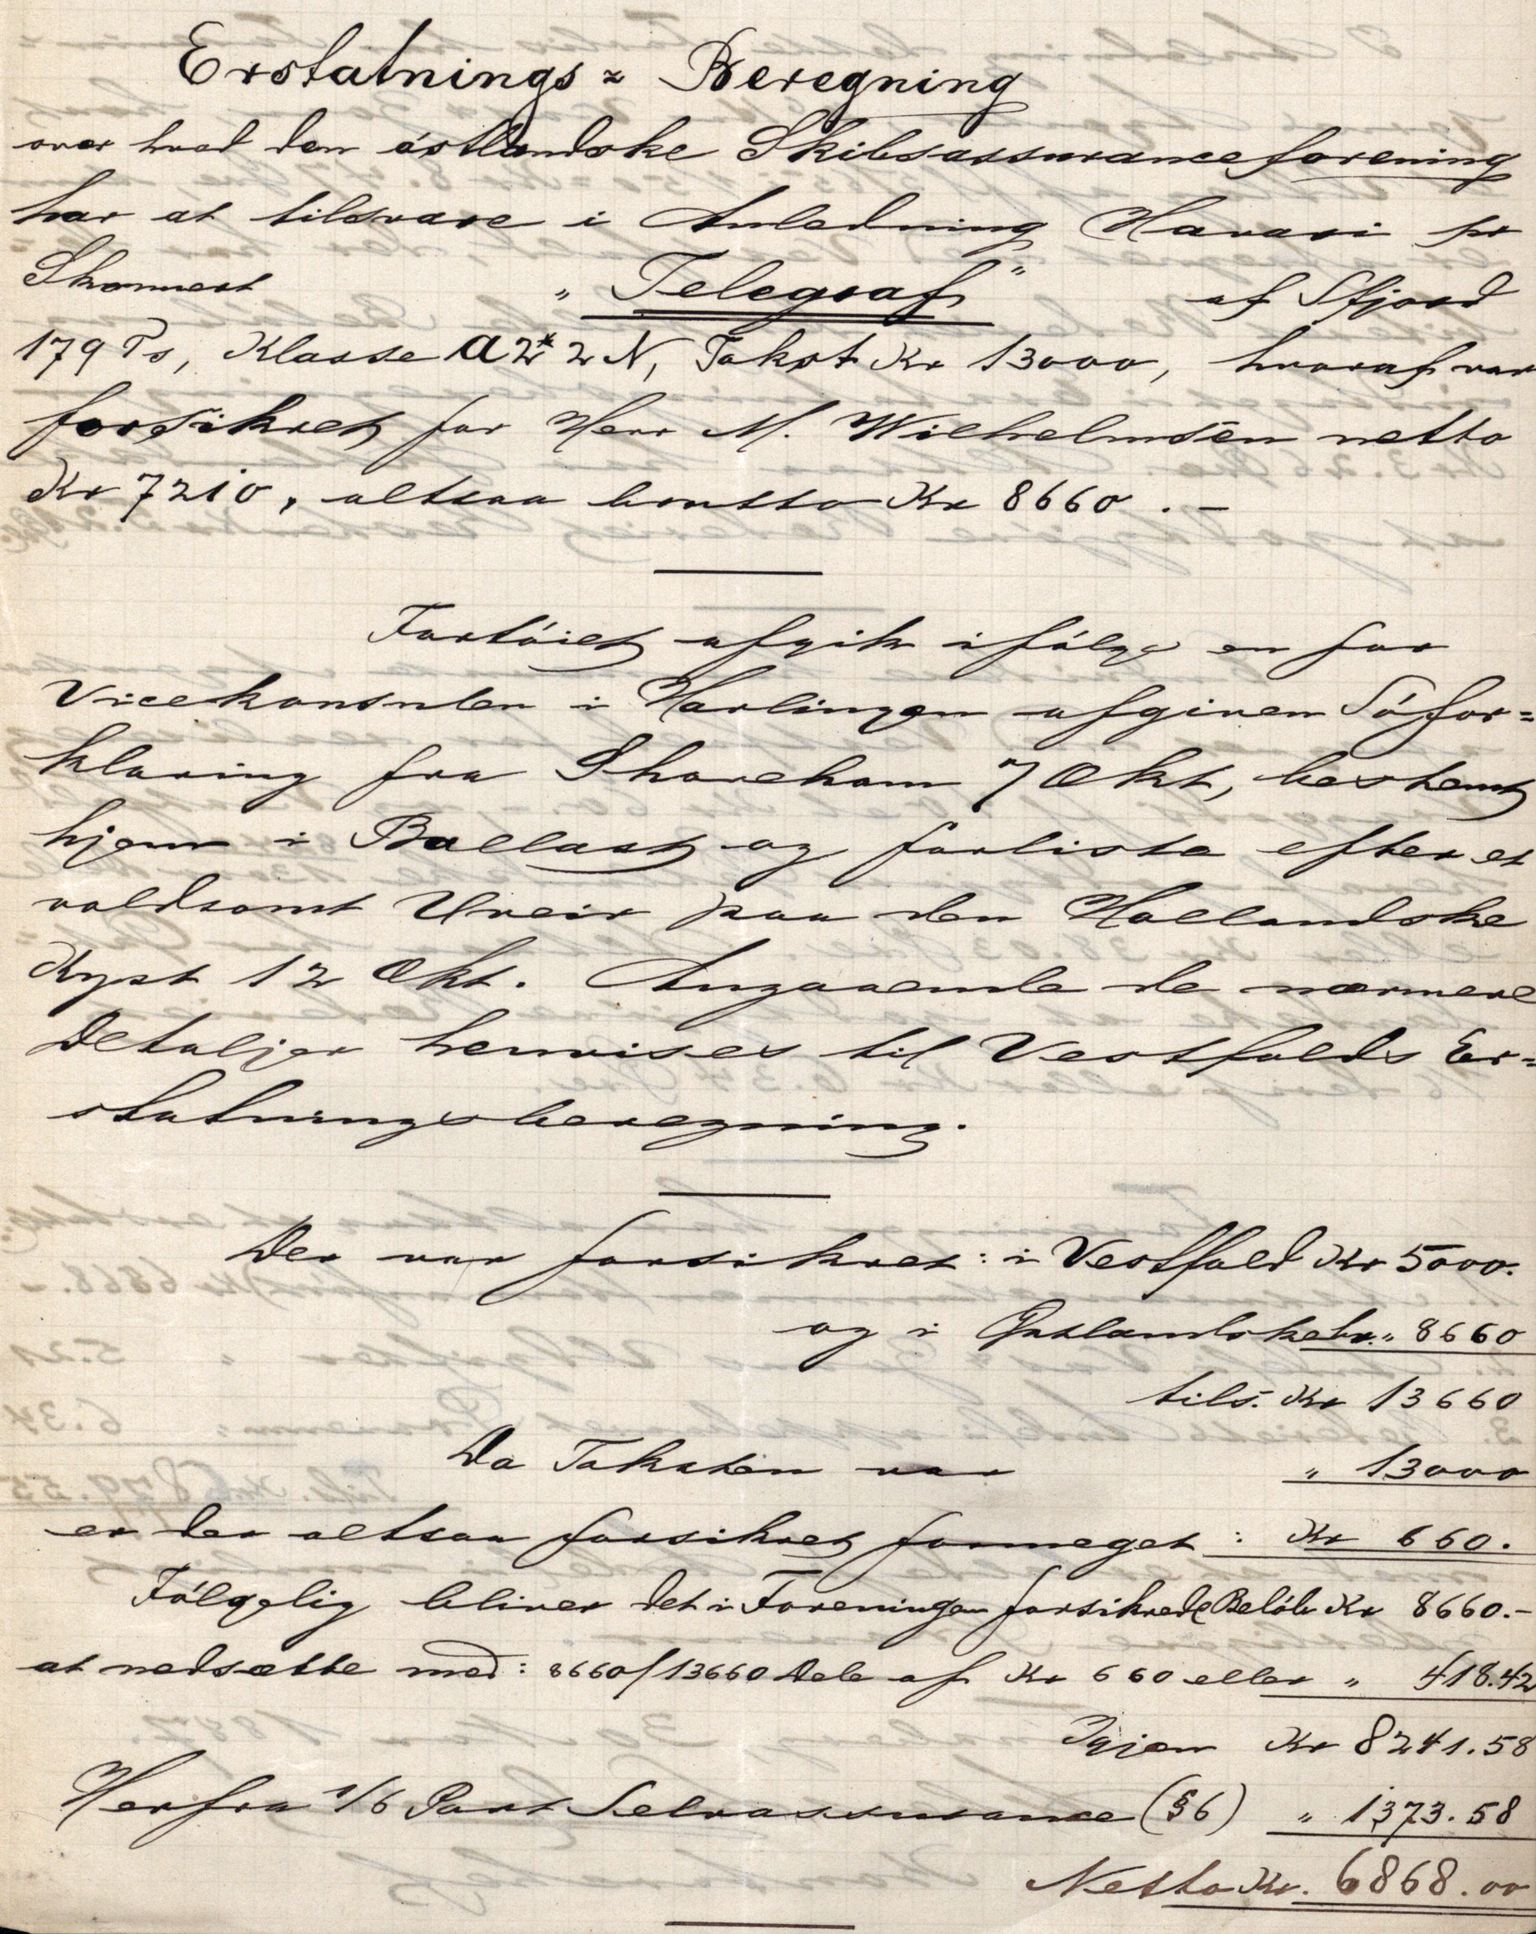 Erstatnings = Beregning
over hvad den østlandske Skibsassuranceforening
har at tilsvare i Anledning Havari pr
Skonnert „Telegraf" af Sfjord
179 Ts, Klasse A2* 2 N, Takst Kr 13000, hvoraf var
forsikret for Herr M. Wilhelmsen netto
Kr 7210, altsaa brutto Kr 8660.-
Fartøiet afgik ifølge en for
Vicekonsulen i Harlingen afgiven Søfor=
klaring fra Shoreham 7 Okt, bestemt
hjem i Ballast og forliste efter et
voldsomt Uveir paa den Hollandske
Kyst 12 Okt. Angaaende de nærmere
Detaljer henvises til Vestfolds Er=
statningsberegning.
Der var forsikret: i Vestfold Kr 5000.
og i Østlandske br. „ 8660
tils. Kr 13660
Da Taksten var „ 13000
er der altsaa forsikret formeget: Kr 660.
Følgelig bliver det i Foreningen forsikrede Beløb Kr 8660.-
at nedsætte med: 8660/13660 Dele af Kr 660 eller „ 418.42
Igjen Kr 8241.58
Herfra 1/6 Part Selvassurance (§6) „ 1373.58
Netto Kr. 6868.00